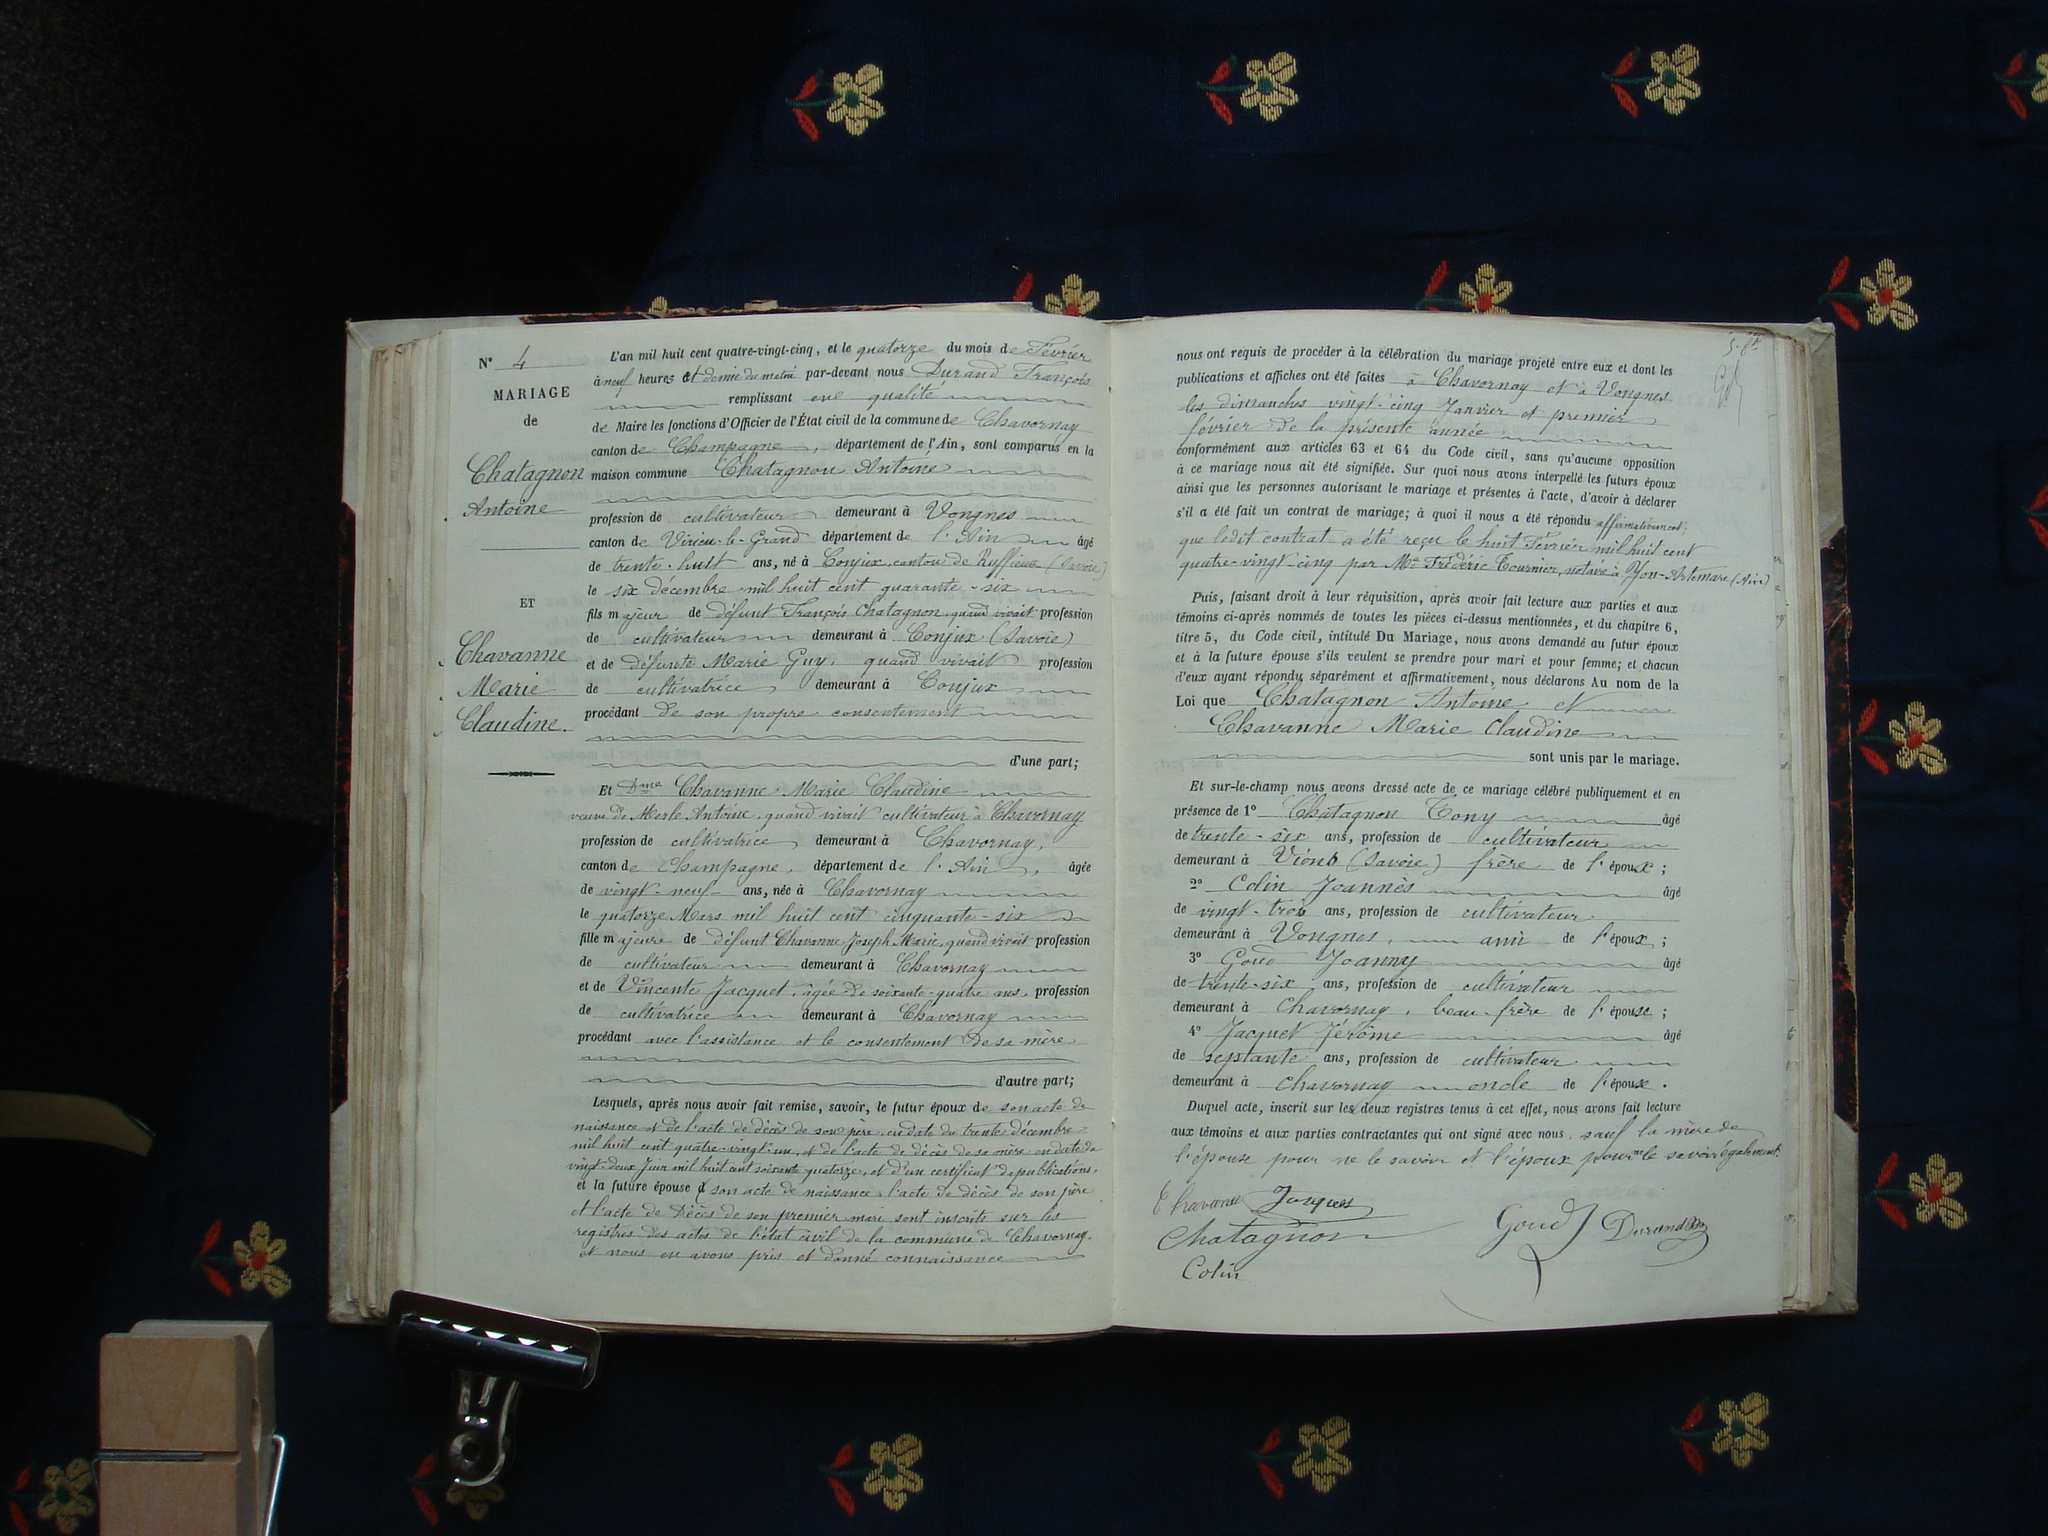 N° 4
MARIAGE
de
Chatagnon
Antoine
ET
Chavanne
Marie
Claudine.
L'an mil huit cent quatre-vingt-cinq, et le quatorze du mois de Février
à neuf heures et demie du matin par-devant nous Durand François
remplissant en qualité
de Maire les fonctions d'Officier de l'État civil de la commune de Chavornay
canton de Champagne, département de l'Ain, sont comparus en la
maison commune Chatagnon Antoine
profession de cultivateur demeurant à Vongnes
canton de Virieu-le-Grand département de l'Ain âgé
de trente-huit ans, né à Conjux, canton de Ruffieux (Savoie)
le six décembre mil huit cent quarante-six
fils majeur de défunt François Chatagnon, quand vivait profession
de cultivateur demeurant à Conjux (Savoie)
et de défunte Marie Guy, quand vivait profession
de cultivatrice demeurant à Conjux
procédant de son propre consentement
d'une part;
Et Dme Chavanne Marie Claudine
veuve de Merle Antoine, quand vivait cultivateur à Chavornay
profession de cultivatrice demeurant à Chavornay,
canton de Champagne, département de l'Ain, âgée
de vingt-neuf ans, née à Chavornay
le quatorze Mars mil huit cent cinquante-six
fille majeure de défunt Chavanne Joseph Marie, quand vivait profession
de cultivateur demeurant à Chavornay
et de Vincente Jacquet, âgée de soixante-quatre ans, profession
de cultivatrice demeurant à Chavornay
procédant avec l'assistance et le consentement de sa mère
d'autre part;
Lesquels, après nous avoir fait remise, savoir, le futur époux de son acte de
naissance et de l'acte de décès de son père, en date du trente décembre
mil huit cent quatre-vingt-un, et de l'acte de décès de sa mère en date du
vingt-deux Juin mil huit cent soixante quatorze, et d'un certificat de publications,
et la future épouse son acte de naissance, l'acte de décès de son père
et l'acte de Décès de son premier mari sont inscrits sur les
registres des actes de l'état civil de la commune de Chavornay,
et nous en avons pris et donné connaissance
nous ont requis de procéder à la célébration du mariage projeté entre eux et dont les
publications et affiches ont été faites à Chavornay et à Vongnes
les dimanches vingt-cinq Janvier et premier
février de la présente année
conformément aux articles 63 et 64 du Code civil, sans qu'aucune opposition
à ce mariage nous ait été signifiée. Sur quoi nous avons interpellé les futurs époux
ainsi que les personnes autorisant le mariage et présentes à l'acte, d'avoir à déclarer
s'il a été fait un contrat de mariage; à quoi il nous a été répondu affirmativement;
que ledit contrat a été reçu le huit Février mil huit cent
quatre-vingt-cinq par Me Frédéric Tournier, notaire à Yon-Artemare (Ain)
Puis, faisant droit à leur réquisition, après avoir fait lecture aux parties et aux
témoins ci-après nommés de toutes les pièces ci-dessus mentionnées, et du chapitre 6,
titre 5, du Code civil, intitulé Du Mariage, nous avons demandé au futur époux
et à la future épouse s'ils veulent se prendre pour mari et pour femme; et chacun
d'eux ayant répondu séparément et affirmativement, nous déclarons Au nom de la
Loi que Chatagnon Antoine et
Chavanne Marie Claudine
sont unis par le mariage.
Et sur-le-champ nous avons dressé acte de ce mariage célébré publiquement et en
présence de 1° Chatagnon Tony âgé
de trente-six ans, profession de cultivateur
demeurant à (Savoie) frère de l'époux;
2° Colin Joannès âgé
de vingt-trois ans, profession de cultivateur
demeurant à Vongnes, ami de l'époux;
3° Goud Joanny âgé
de trente-six ans, profession de cultivateur
demeurant à Chavornay, beau-frère de l'épouse;
4° Jacquet Jérôme âgé
de septante ans, profession de cultivateur
demeurant à Chavornay oncle de l'épouse.
Duquel acte, inscrit sur les deux registres tenus à cet effet, nous avons fait lecture
aux témoins et aux parties contractantes qui ont signé avec nous, sauf la mère de
l'épouse pour ne le savoir et l'époux pour ne le savoir également
Chavanne Jacques
Chatagnon Goud Durand
Colin